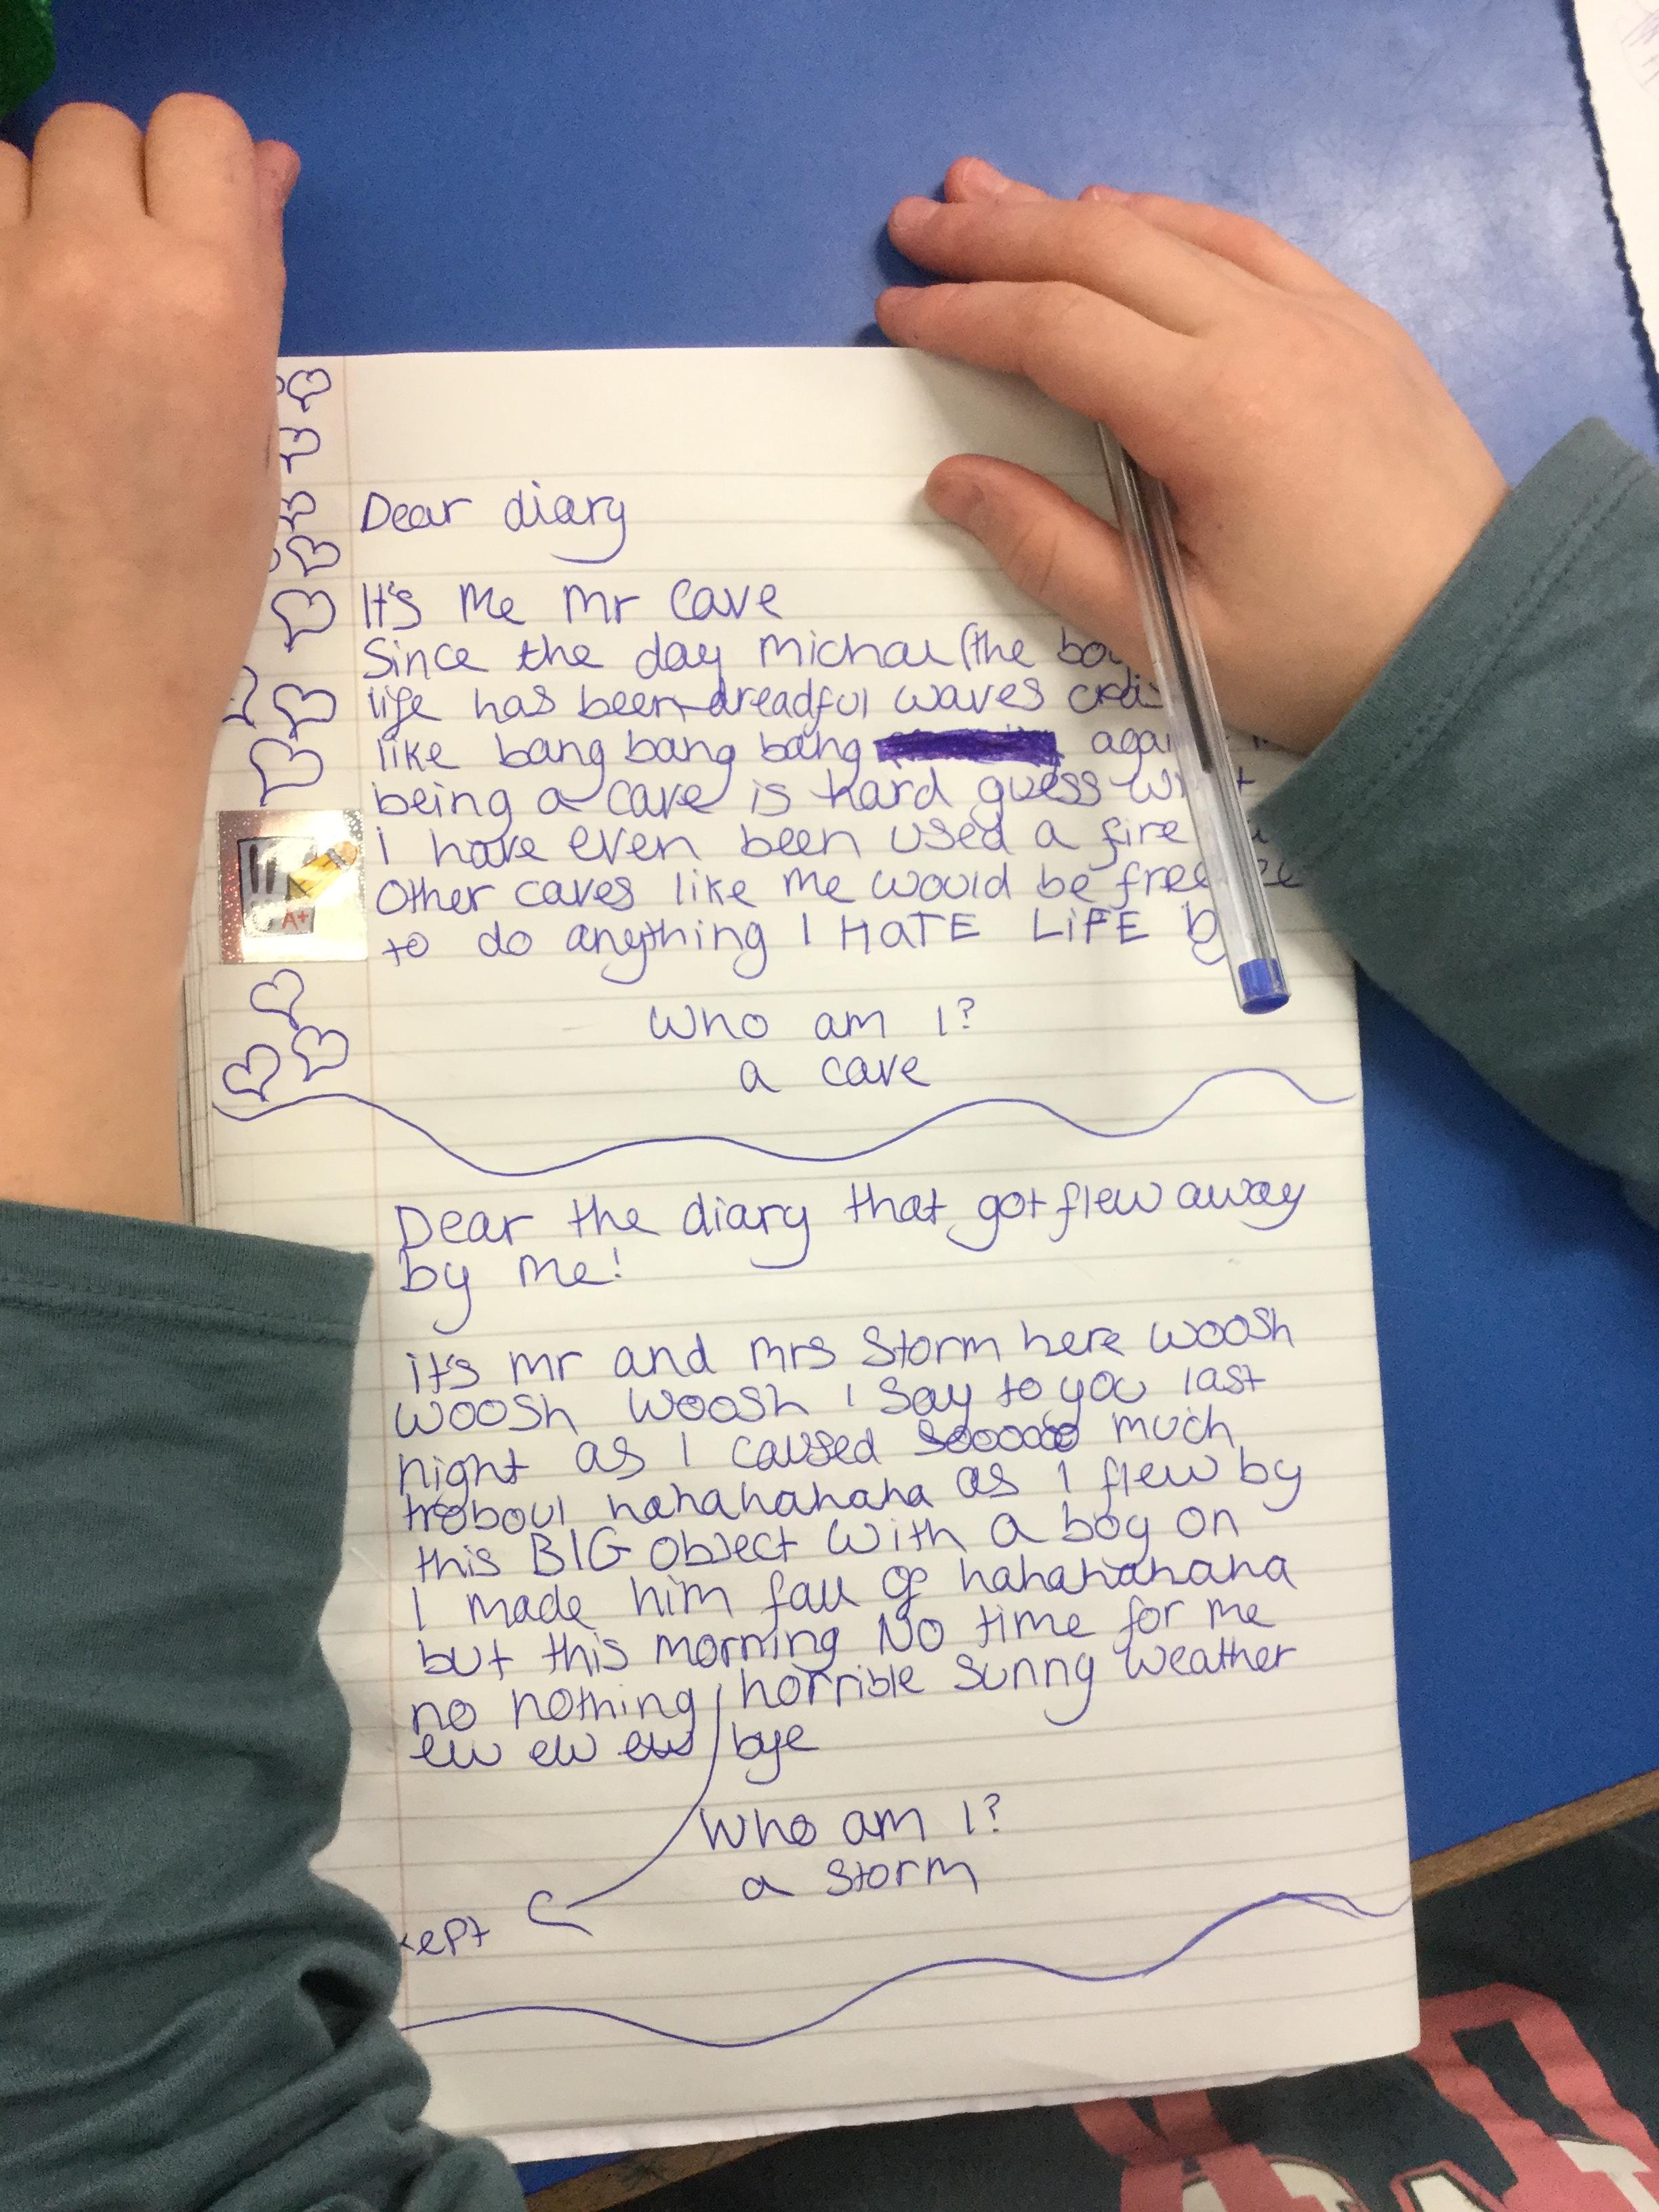 Dear diary
It's me mr cave
Since the day michal (the
life has been dreadful waves
like bang bang bang
being a cave is hard guess
I have even been used a fire
Other caves like me would be
to do anything I HaTE LiFE
Who am I?
a cave
A+
Dear the diary that got flew away
by me!
it's mr and mrs Storm here woosh
woosh woosh I say to you last
night as I caused soooooo much
troboul hahahahaha as I flew by
this BIG object with a boy on
I made him fall of hahahahahaha
but this morning No time for me
no nothing horrible sunny weather
ew ew ew bye
Who am I?
a storm